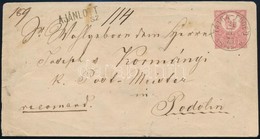 169.
AJÁNLOTT
114
Sr Wohlgeboren dem Herrn
Josef v Kormányi
k. Post-Meister
in
recomand. Podolin